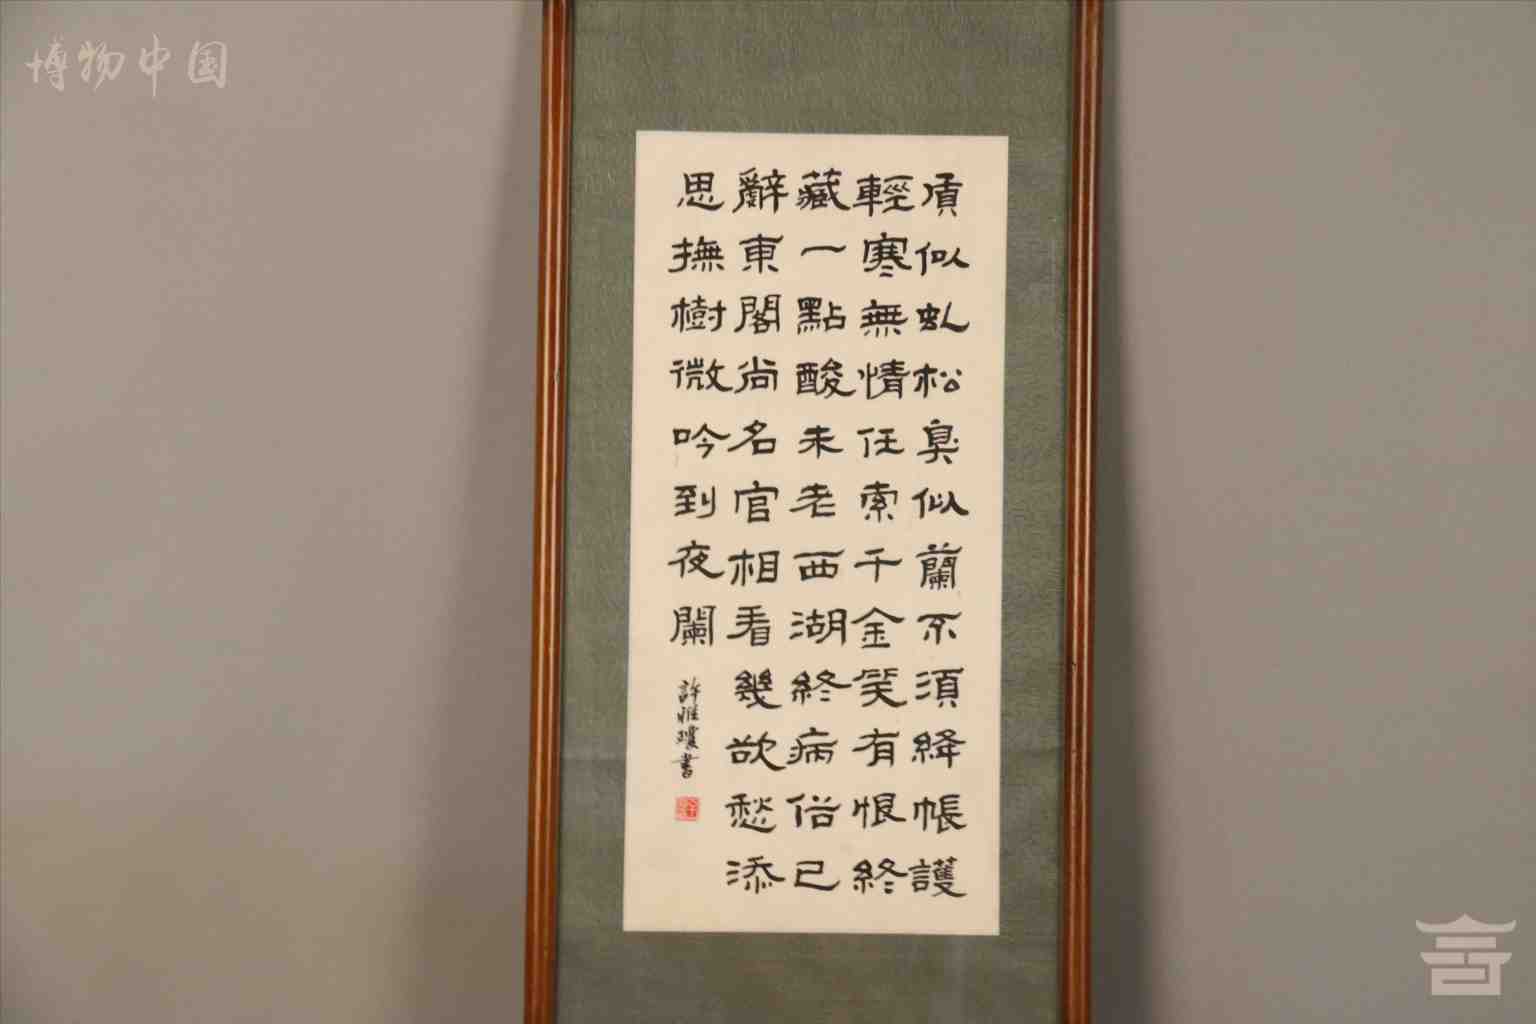 博物中国
質似虬松臭似蘭不須絳帳護
輕寒無情任索千金笑有恨終
藏一點酸未老西湖終病俗已
辭東閣尚名官相看幾欲愁添
思撫樹微吟到夜闌
許雅瓊書